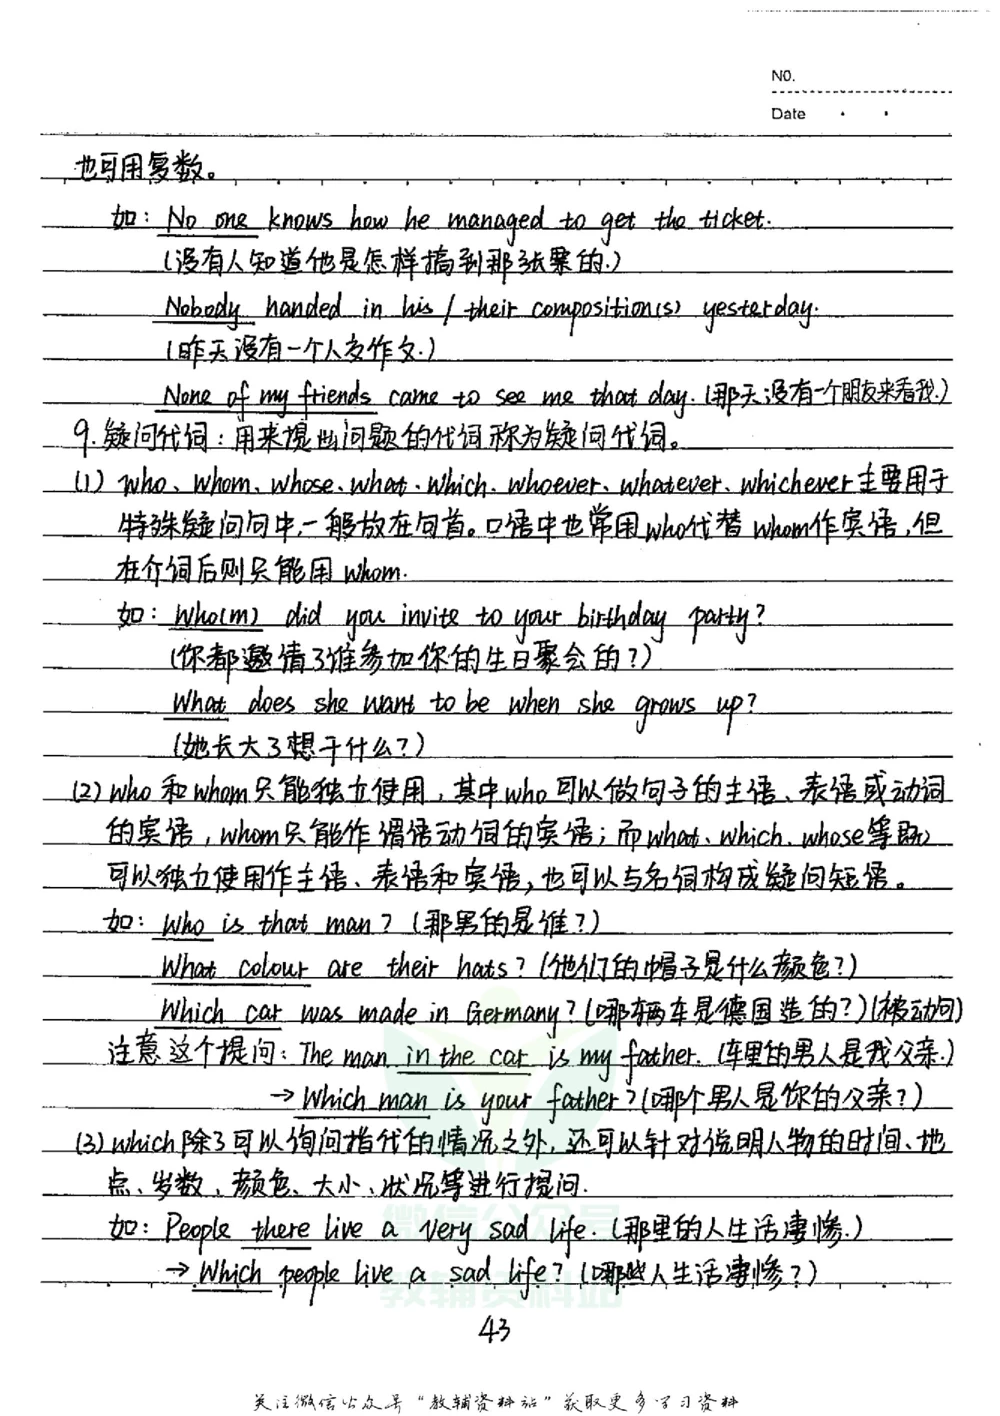 NO.
Date
也可用复数。
如: No one knows how he managed to get the ticket.
(没有人知道他是怎样搞到那张票的.)
Nobody handed in his / their composition(s) yesterday.
(昨天没有一个人交作文.)
None of my friends came to see me that day. (那天没有一个朋友来看我.)
9.疑问代词:用来提出问题的代词称为疑问代词。
(1) who、whom、whose、what、which、whoever、whatever、whichever主要用于
特殊疑问句中,一般放在句首。口语中也常用who代替whom作宾语,但
在介词后则只能用whom.
如: Who(m) did you invite to your birthday party?
(你都邀请了谁参加你的生日聚会的?)
What does she want to be when she grows up?
(她长大了想干什么?)
(2) who和whom只能独立使用,其中who可以做句子的主语、表语或动词
的宾语,whom只能作谓语动词的宾语;而what、which、whose等既
可以独立使用作主语、表语和宾语,也可以与名词构成疑问短语。
如: Who is that man? (那男的是谁?)
What colour are their hats? (他们的帽子是什么颜色?)
Which car was made in Germany? (哪辆车是德国造的?)(被动问)
注意这个提问: The man in the car is my father. (车里的男人是我父亲.)
→ Which man is your father? (哪个男人是你的父亲?)
(3) which除了可以询问指代的情况之外,还可以针对说明人物的时间、地
点、岁数、颜色、大小、状况等进行提问.
如: People there live a very sad life. (那里的人生活凄惨.)
→ Which people live a sad life? (哪些人生活凄惨?)
微信公众号
教辅资料站
43
关注微信公众号"教辅资料站"获取更多学习资料